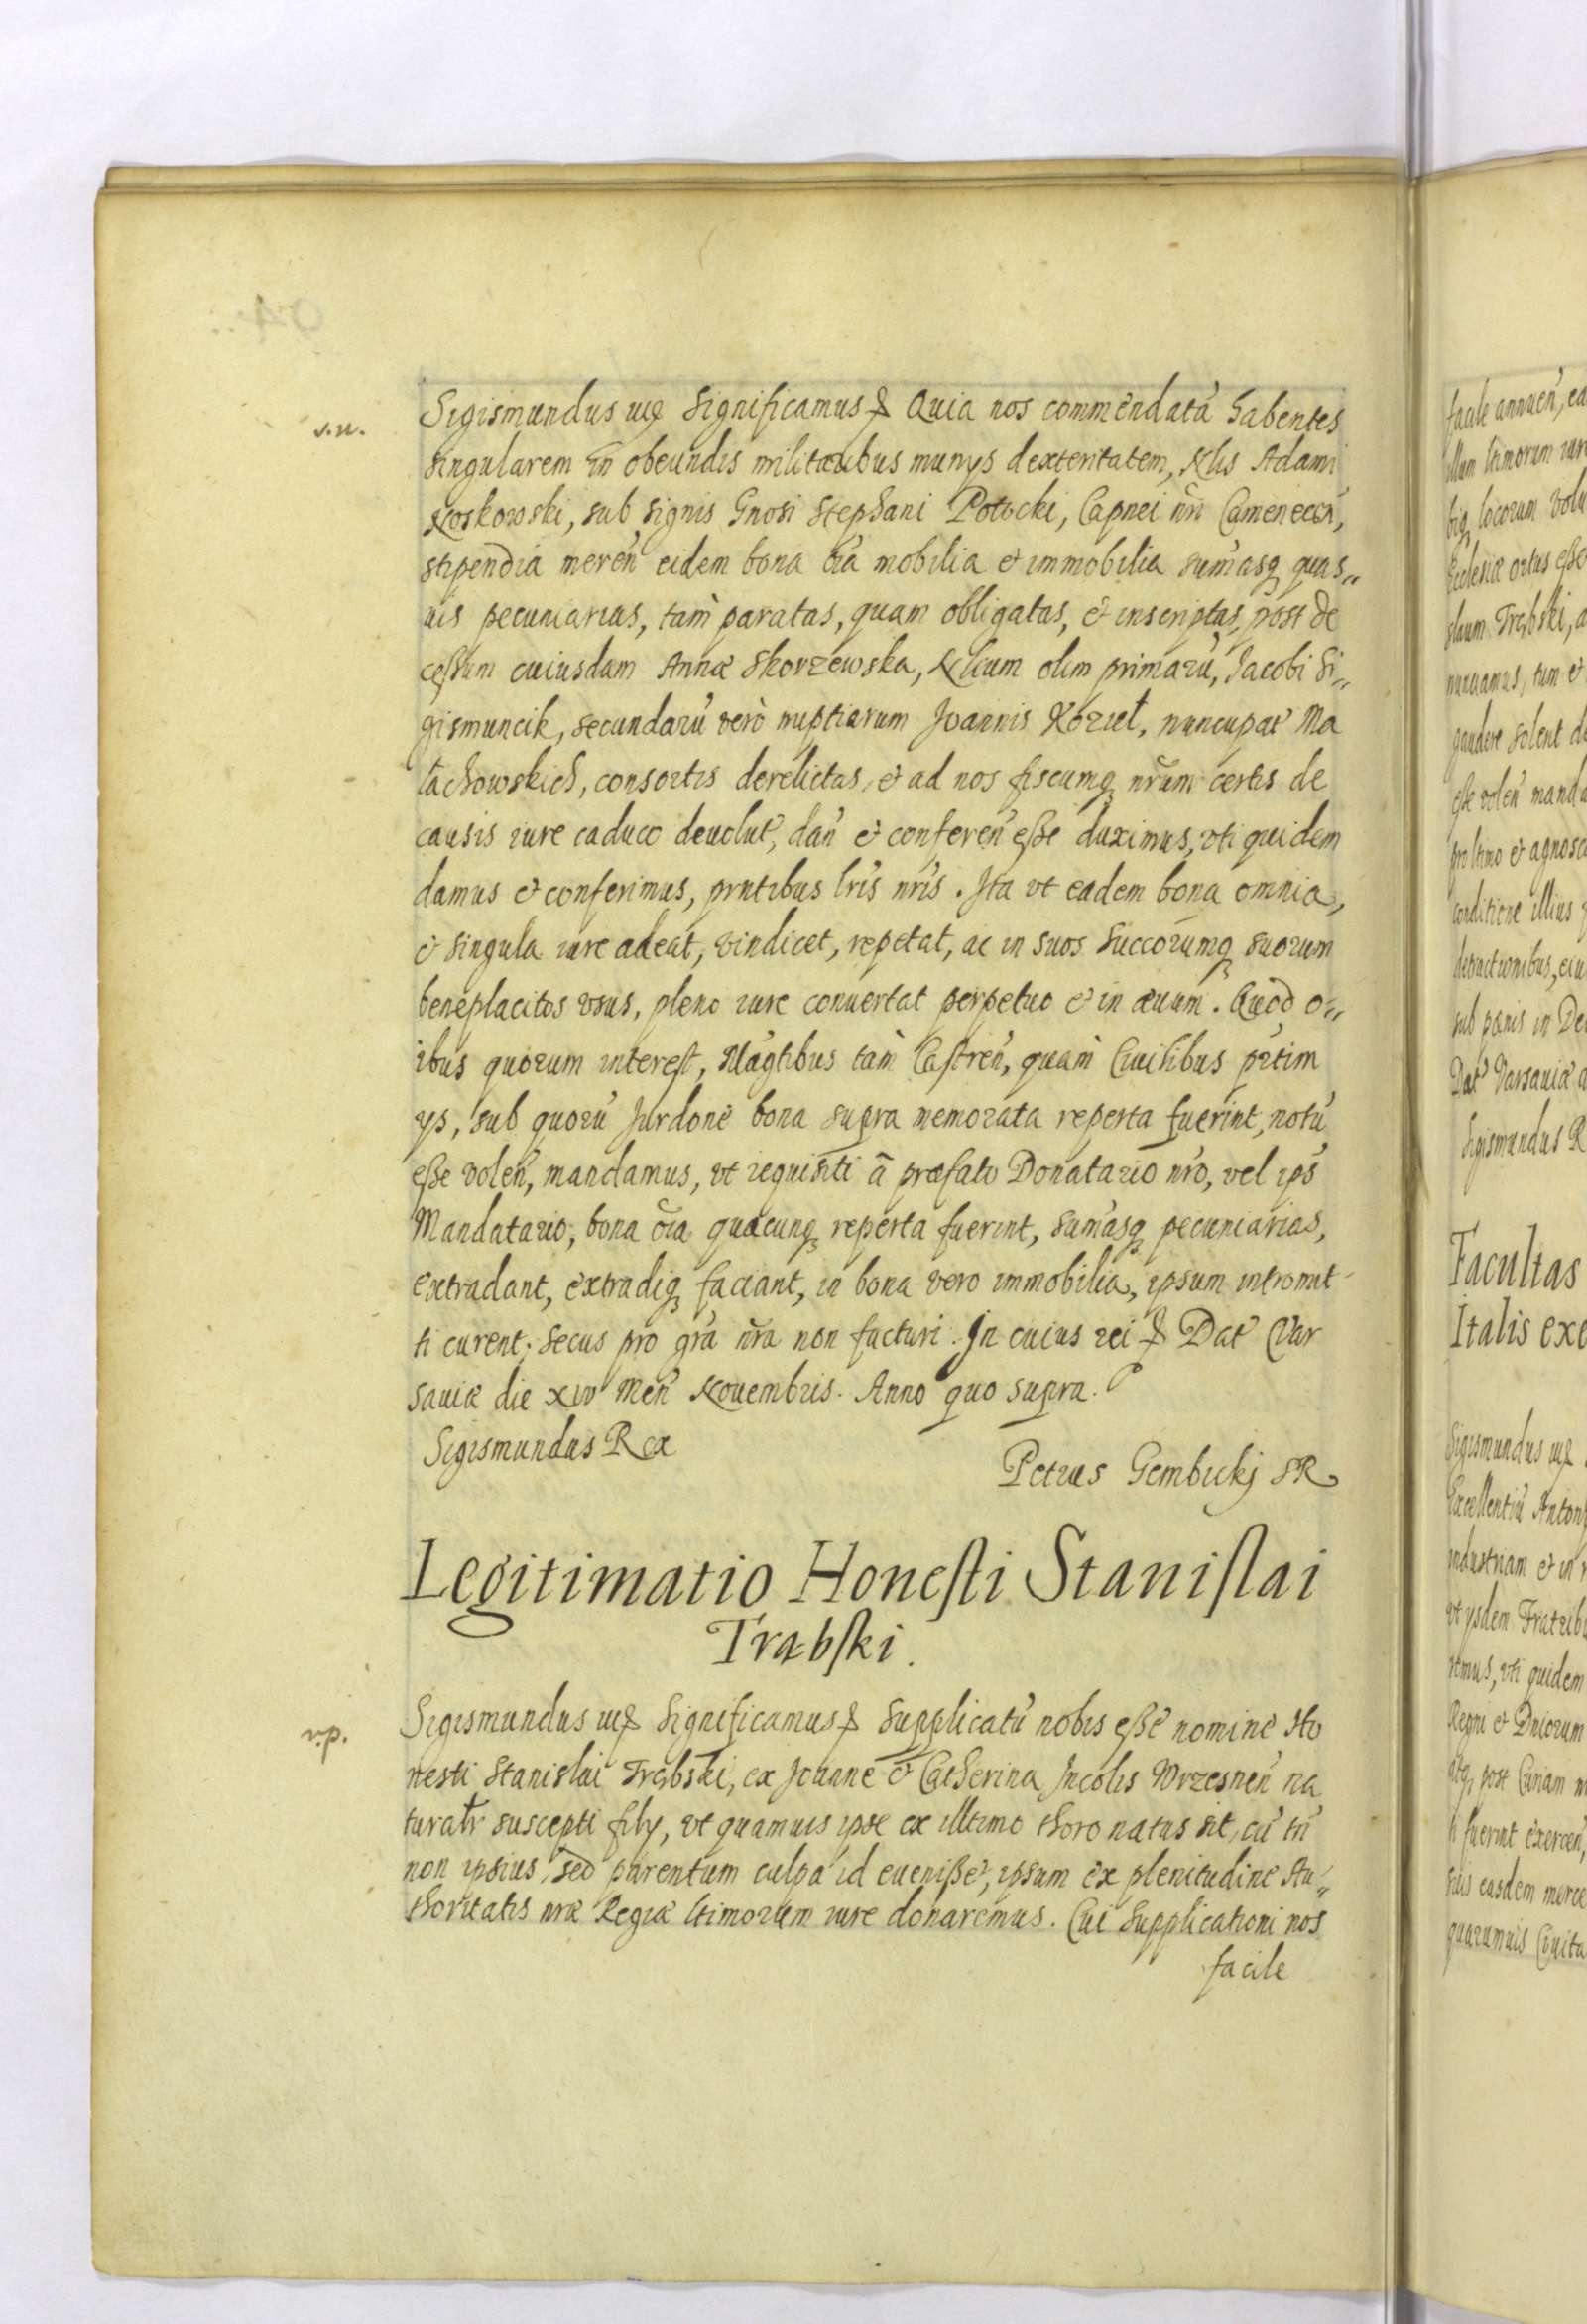 Sigismundus iiiꝭ Significamus ꝭ Quia nos commendatá habentes
s.n.
singularem in obeundis militaribus munys dexteritatem, Nlis Adami
Noskowski, sub signis Gnosi Stephani Potocki, Capnei nri Camenecen,
stipendia meren̄ eidem bona oīa mobilia et immobilia sum̄asq quas„
uis pecuniarias, tam̀ paratas, quam obligatas, et inscriptas, post de
cessum cuiusdam Annæ Skorzewska, Nlium olim primarū, Jacobi Si„
gismuncik, secundarū verò nuptiarum Joannis Kozieł, nuncupat Ma
łachowskich, consortis derelictas, et ad nos fiscumq nr̄um certis de
causis iure caduco deuolut, dan̄ et conferen̄ esse duximus, vti quidem
damus et conferimus, prntibus lr̄is nr̄is. Ita vt eadem bona omnia,
et singula iure adeat, vindicet, repetat, ac in suos Succorumq suorum
beneplacitos vsus, pleno iure conuertat perpetuo et in æuum. Quod o„
ibus quorum interest, Mag̃tibus tam̀ Castren̄, quam̀ Ciuilibus pr̄tim
ys, sub quorū Jurdone bona supra memorata reperta fuerint, notū
esse volen̄, mandamus, vt requisiti ā præfato Donatario nr̄o, vel ips̄
Mandatario, bona oīa quæcunq reperta fuerint, sum̄asq pecuniarias,
extradant, extradiq faciant, in bona vero immobilia, ipsum intromit
ti curent; secus pro gr̄a nr̄a non facturi. In cuius rei ꝭ Dat Var
sauiæ die xiv Men̄ Nouembris. Anno quo supra.
Sigismundus Rex
Petrus Gembickj SR
Legitimatio Honesti Stanislai
Trąbski.
Sigismundus iiiꝭ Significamus ꝭ Supplicatū nobis esse nomine Ho
r.p.
nesti Stanislai Trąbski, ex Joanne et Catherina Incolis Wrzesnen̄ na
turalr suscepti fily, vt quamuis ipse ex illtimo thoro natus sit, cū tn̄
non ipsius, sed parentum culpa id euenisse, ipsum ex plenitudine Au„
thoritatis nræ Regiæ ltimorum iure donaremus. Cui Supplicationi nos
facile
facile annuen̄, ea
locorum
Ecclesiæ ortus esse
slaum Trąbski, a
gaudere solent de
esse volen̄ manda
pro ltimo et agnosca
conditione illius
detractionibus, eiu
sub pænis in De
Dat Varsauiæ a
Sigismundus R
Facultas
Italis exe
Sigismundus iiiꝭ
industriam et in
vt ysdem Fratrib
vti quidem
Regni et Dniorum
post Curiam
ti fuerint exercen̄,
suis easdem merce
quarumuis Ciuita